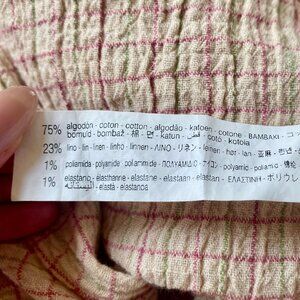 75% algodón - coton - cotton - algodão - katoen - cotone - BAMBAKI - コ
bomuld - bombaž - 棉 - 면 - katun - قطن - coto - kotoia
23% lino - lin - linen - linho - linnen - ΛΙΝΟ - リネン - leinen - hør - lan - 亚麻
1% poliamida - polyamide - poliammide - ΠΟΛΥΑΜΙΔΙΟ - polyamid - poliamid
1% elastano - élasthanne - elastane - elastaan - elastan - ΕΛΑΣΤΙΝΗ - ポリウレ
- elastà - elastanoa